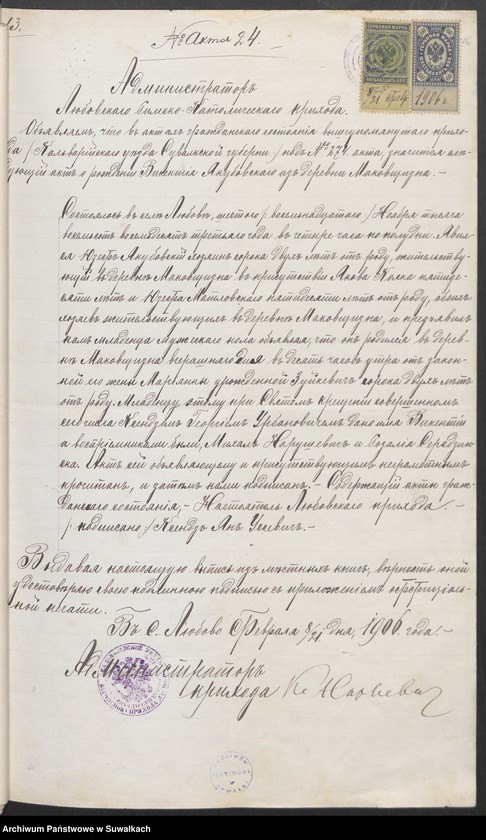 13.
№ Акта 24.
ГЕРБОВАЯ МАРКА
8/21 Февр
1906 г.
Администраторъ
Любовскаго Римско-Католическаго прихода.
Объявляетъ, что въ актахъ гражданскаго состоянія вышеупомянутаго прихо-
да (Кальварійскаго уѣзда Сувалкской губерніи) подъ № 274 акта, значится слѣ-
дующій актъ о рожденіи Викентія Якубовскаго изъ деревни Маковщизна. –
Состоялось въ селѣ Любовѣ, шестого / восемнадцатаго / Ноября тысяча
восемьсотъ восемьдесятъ третьяго года въ четыре часа по полудни. Явил-
ся Юзефъ Якубовскій хозяинъ сорока двухъ лѣтъ отъ роду, жительству-
ющій въ деревнѣ Маковщизна въ присутствіи Якова пятиде-
сяти лѣтъ и Юзефа Матловскаго пятидесяти лѣтъ отъ роду, обоихъ
хозяевъ жительствующихъ въ деревнѣ Маковщизна, и предъявилъ
намъ младенца мужескаго пола объявляя, что онъ родился въ дерев-
нѣ Маковщизна вчерашняго дня въ десять часовъ утра отъ закон-
ной его жены Маріанны урожденной Зуйкевичъ сорока двухъ лѣтъ
отъ роду. Младенцу этому при Святомъ крещеніи совершенномъ
сего числа Ксендзомъ Георгіемъ Урбановичемъ дано имя Викентій
а воспріемниками были, Михалъ Нарушевичъ и Розалія Середзин-
ска. Актъ сей объявляющему и присутствующимъ неграмотнымъ
прочитанъ, и затѣмъ нами подписанъ. – Содержащій акты граж-
данскаго состоянія, – Настоятель Любовскаго прихода. –
/ подписано / Ксендзъ Янъ Усевичъ. –
Выдавая настоящую выпись изъ мѣстныхъ книгъ, вѣрность оной
удостовѣряю своею подлинною подписью съ приложеніемъ оффиціаль-
ной печати.
Въ с. Любово Февраля 8/21 дня, 1906 года. –
Администраторъ
прихода Кс.
Archiwum Państwowe w Suwałkach